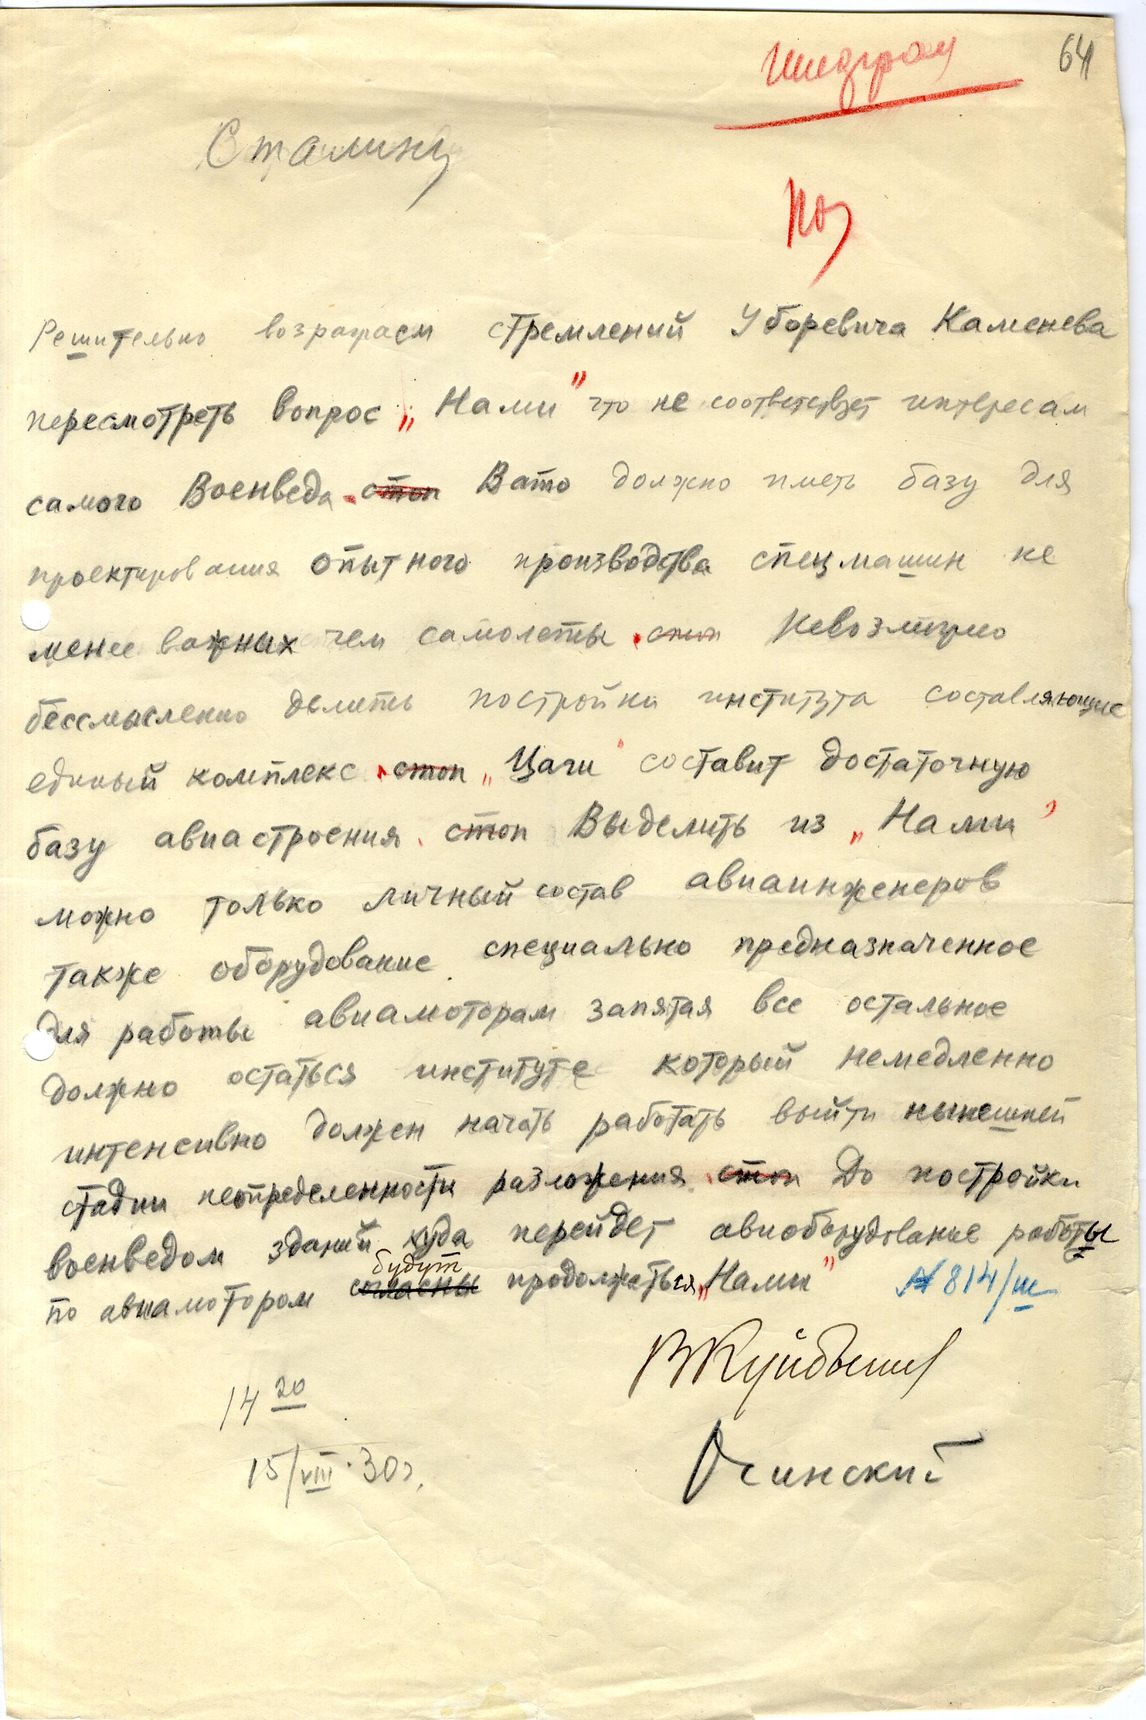 Шифром
64
Сталину
Решительно возражаем стремлений Уборевича Каменева
пересмотреть вопрос „Нами" что не соответствует интересам
самого Военведа. стоп Вато должно иметь базу для
проектирования опытного производства спецмашин не
менее важных чем самолеты. стоп Невозможно
бессмысленно делить постройки института составляющие
единый комплекс. стоп „Цаги" составит достаточную
базу авиастроения. стоп Выделить из „Нами"
можно только личный состав авиаинженеров
также оборудование специально предназначенное
для работы авиамоторам запятая все остальное
должно остаться институте который немедленно
интенсивно должен начать работать выйти нынешней
стадии неопределенности разложения. стоп До постройки
военведом зданий куда перейдет авиоборудование работы
будут
по авиамоторам согласны продолжаться „Нами" № 814/ш
ВКуйбышев
14 20
Осинский
15/VIII.30г.